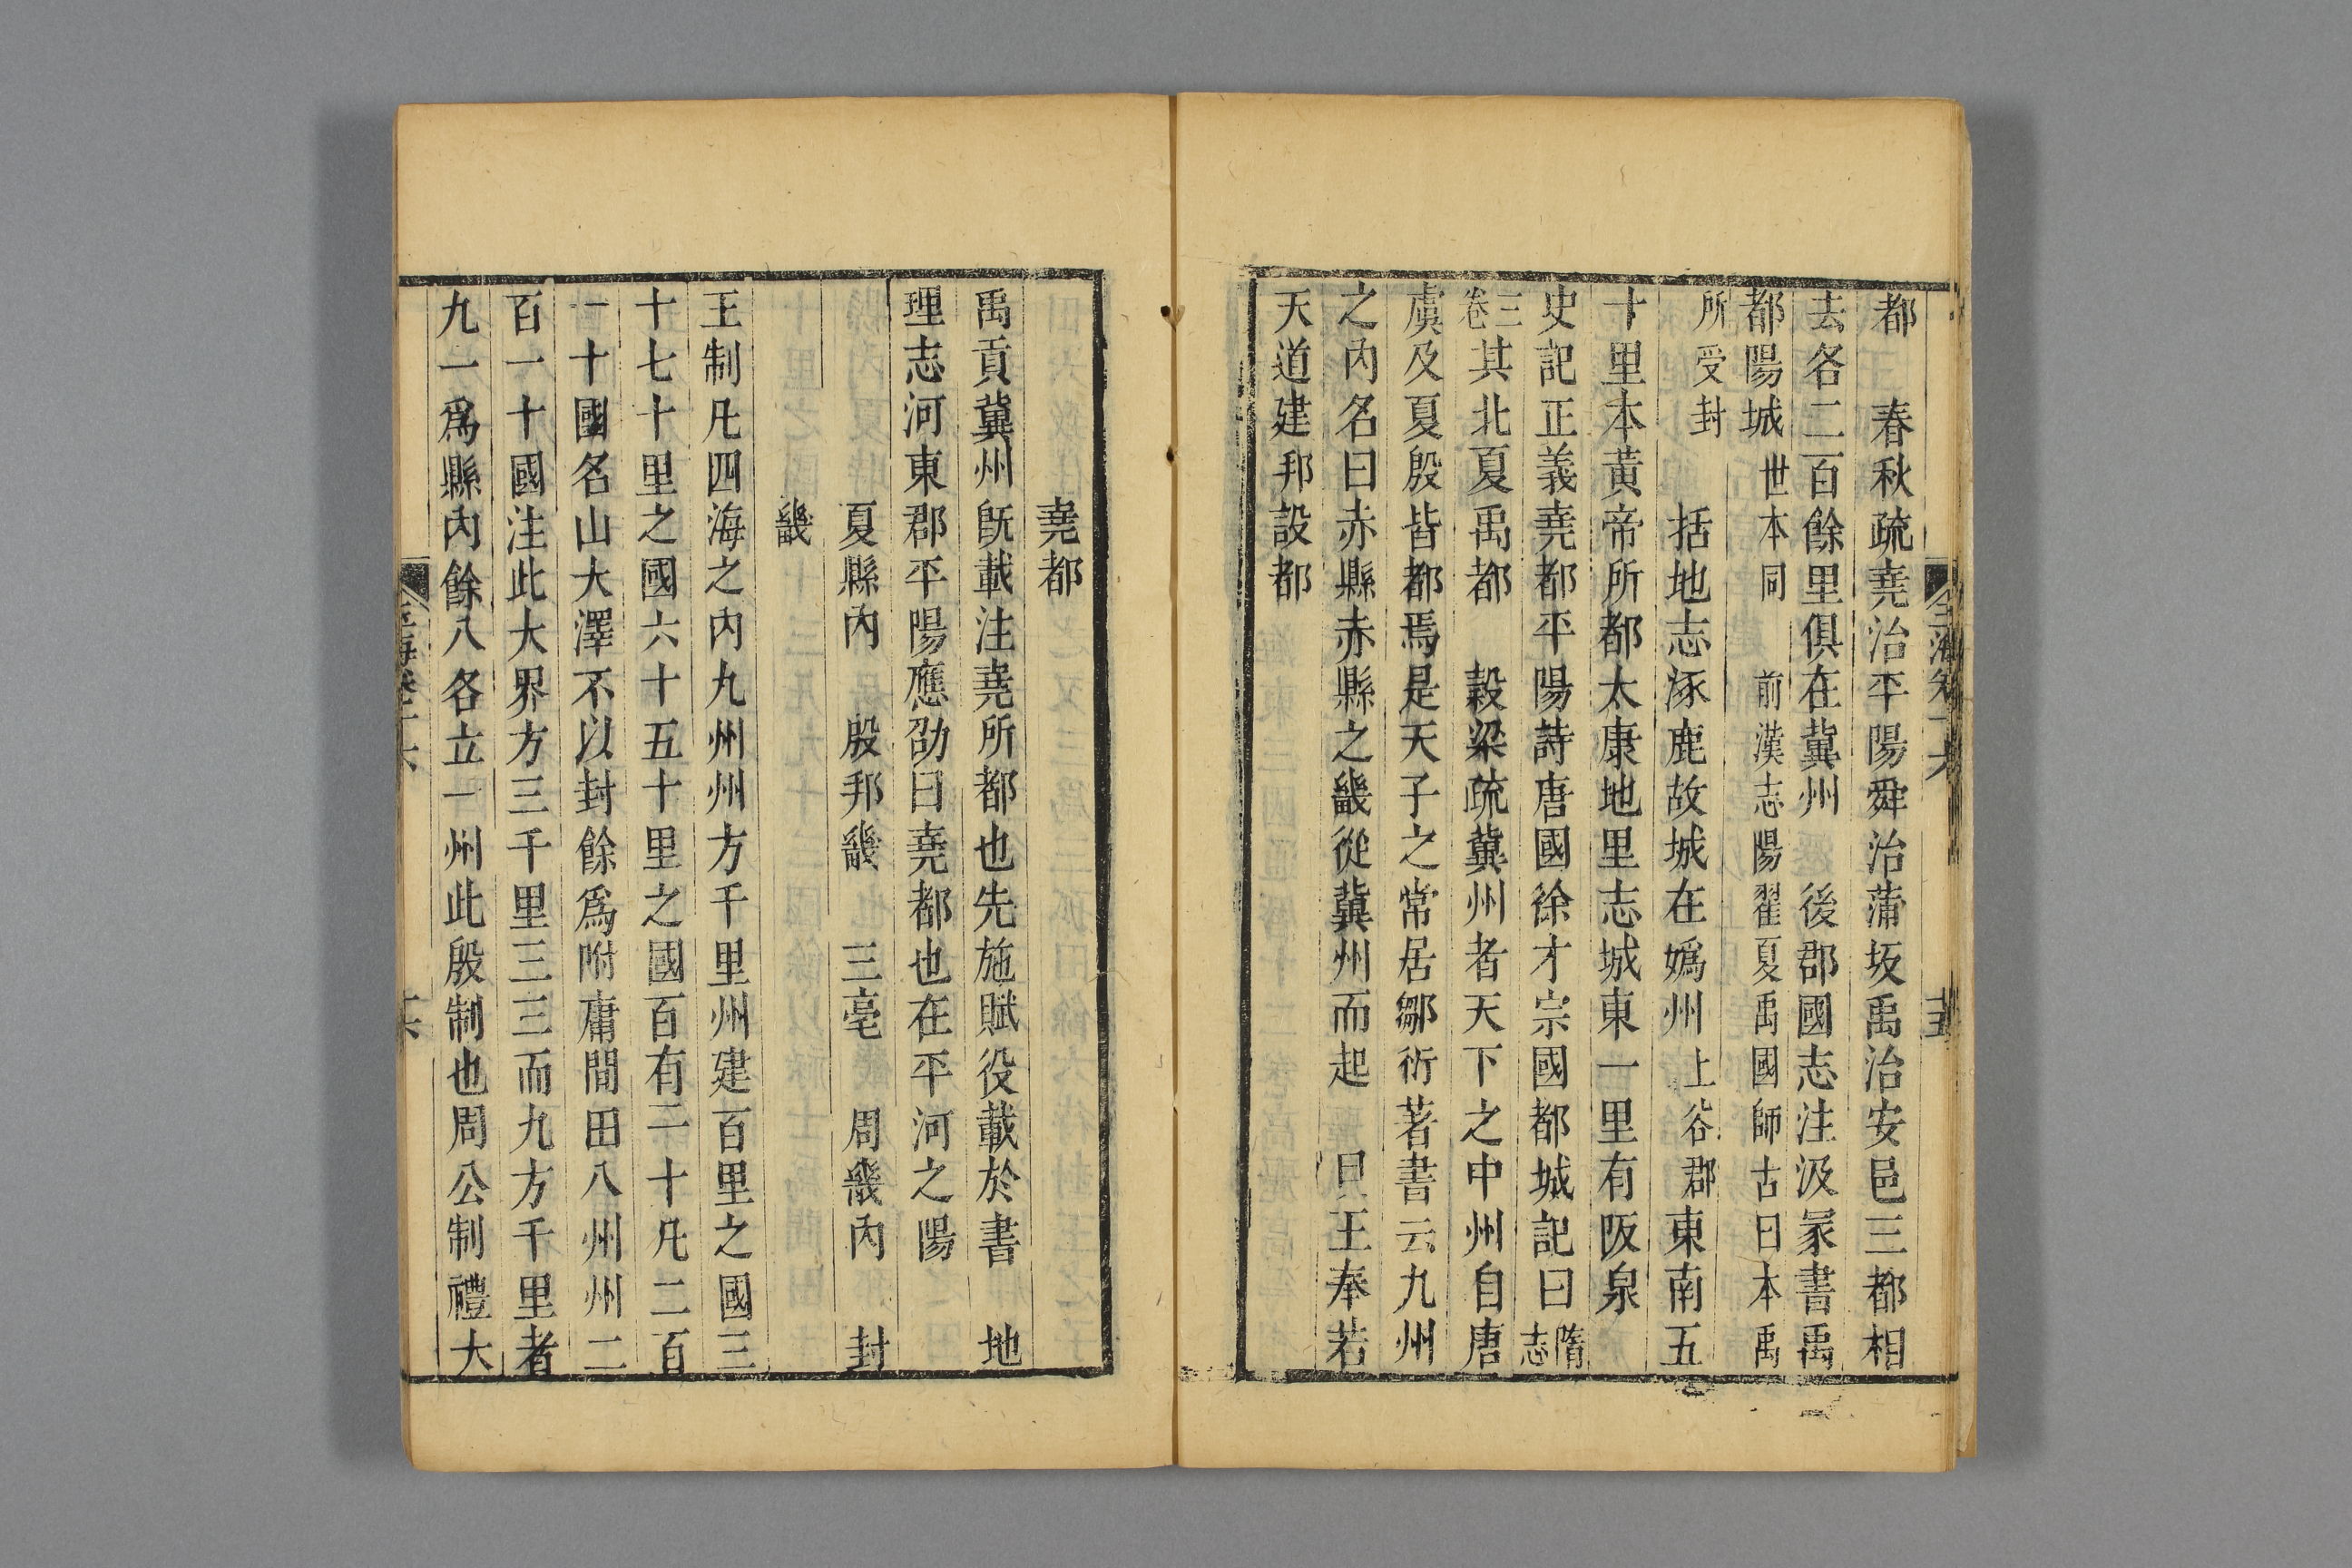 都　春秋疏堯治平陽舜治蒲坂禹治安邑三都相
去各二百餘里俱在冀州　後郡國志注汲冢書禹
都陽城世本同　前漢志陽翟夏禹國師古曰本禹
所受封　括地志涿鹿故城在嬀州上谷郡東南五
十里本黃帝所都太康地里志城東一里有阪泉
史記正義堯都平陽詩唐國徐才宗國都城記曰隋志
三卷其北夏禹都　穀梁疏冀州者天下之中州自唐
虞及夏殷皆都焉是天子之常居鄒衍著書云九州
之內名曰赤縣赤縣之畿從冀州而起　明王奉若
天道建邦設都
堯都
禹貢冀州旣載注堯所都也先施賦役載於書　地
理志河東郡平陽應劭曰堯都也在平河之陽
夏縣內　殷邦畿　三亳　周畿內　封
畿
王制凡四海之內九州州方千里州建百里之國三
十七十里之國六十五十里之國百有二十凡二百
一十國名山大澤不以封餘爲附庸間田八州州二
百一十國注此大界方三千里三三而九方千里者
九一爲縣內餘八各立一州此殷制也周公制禮大